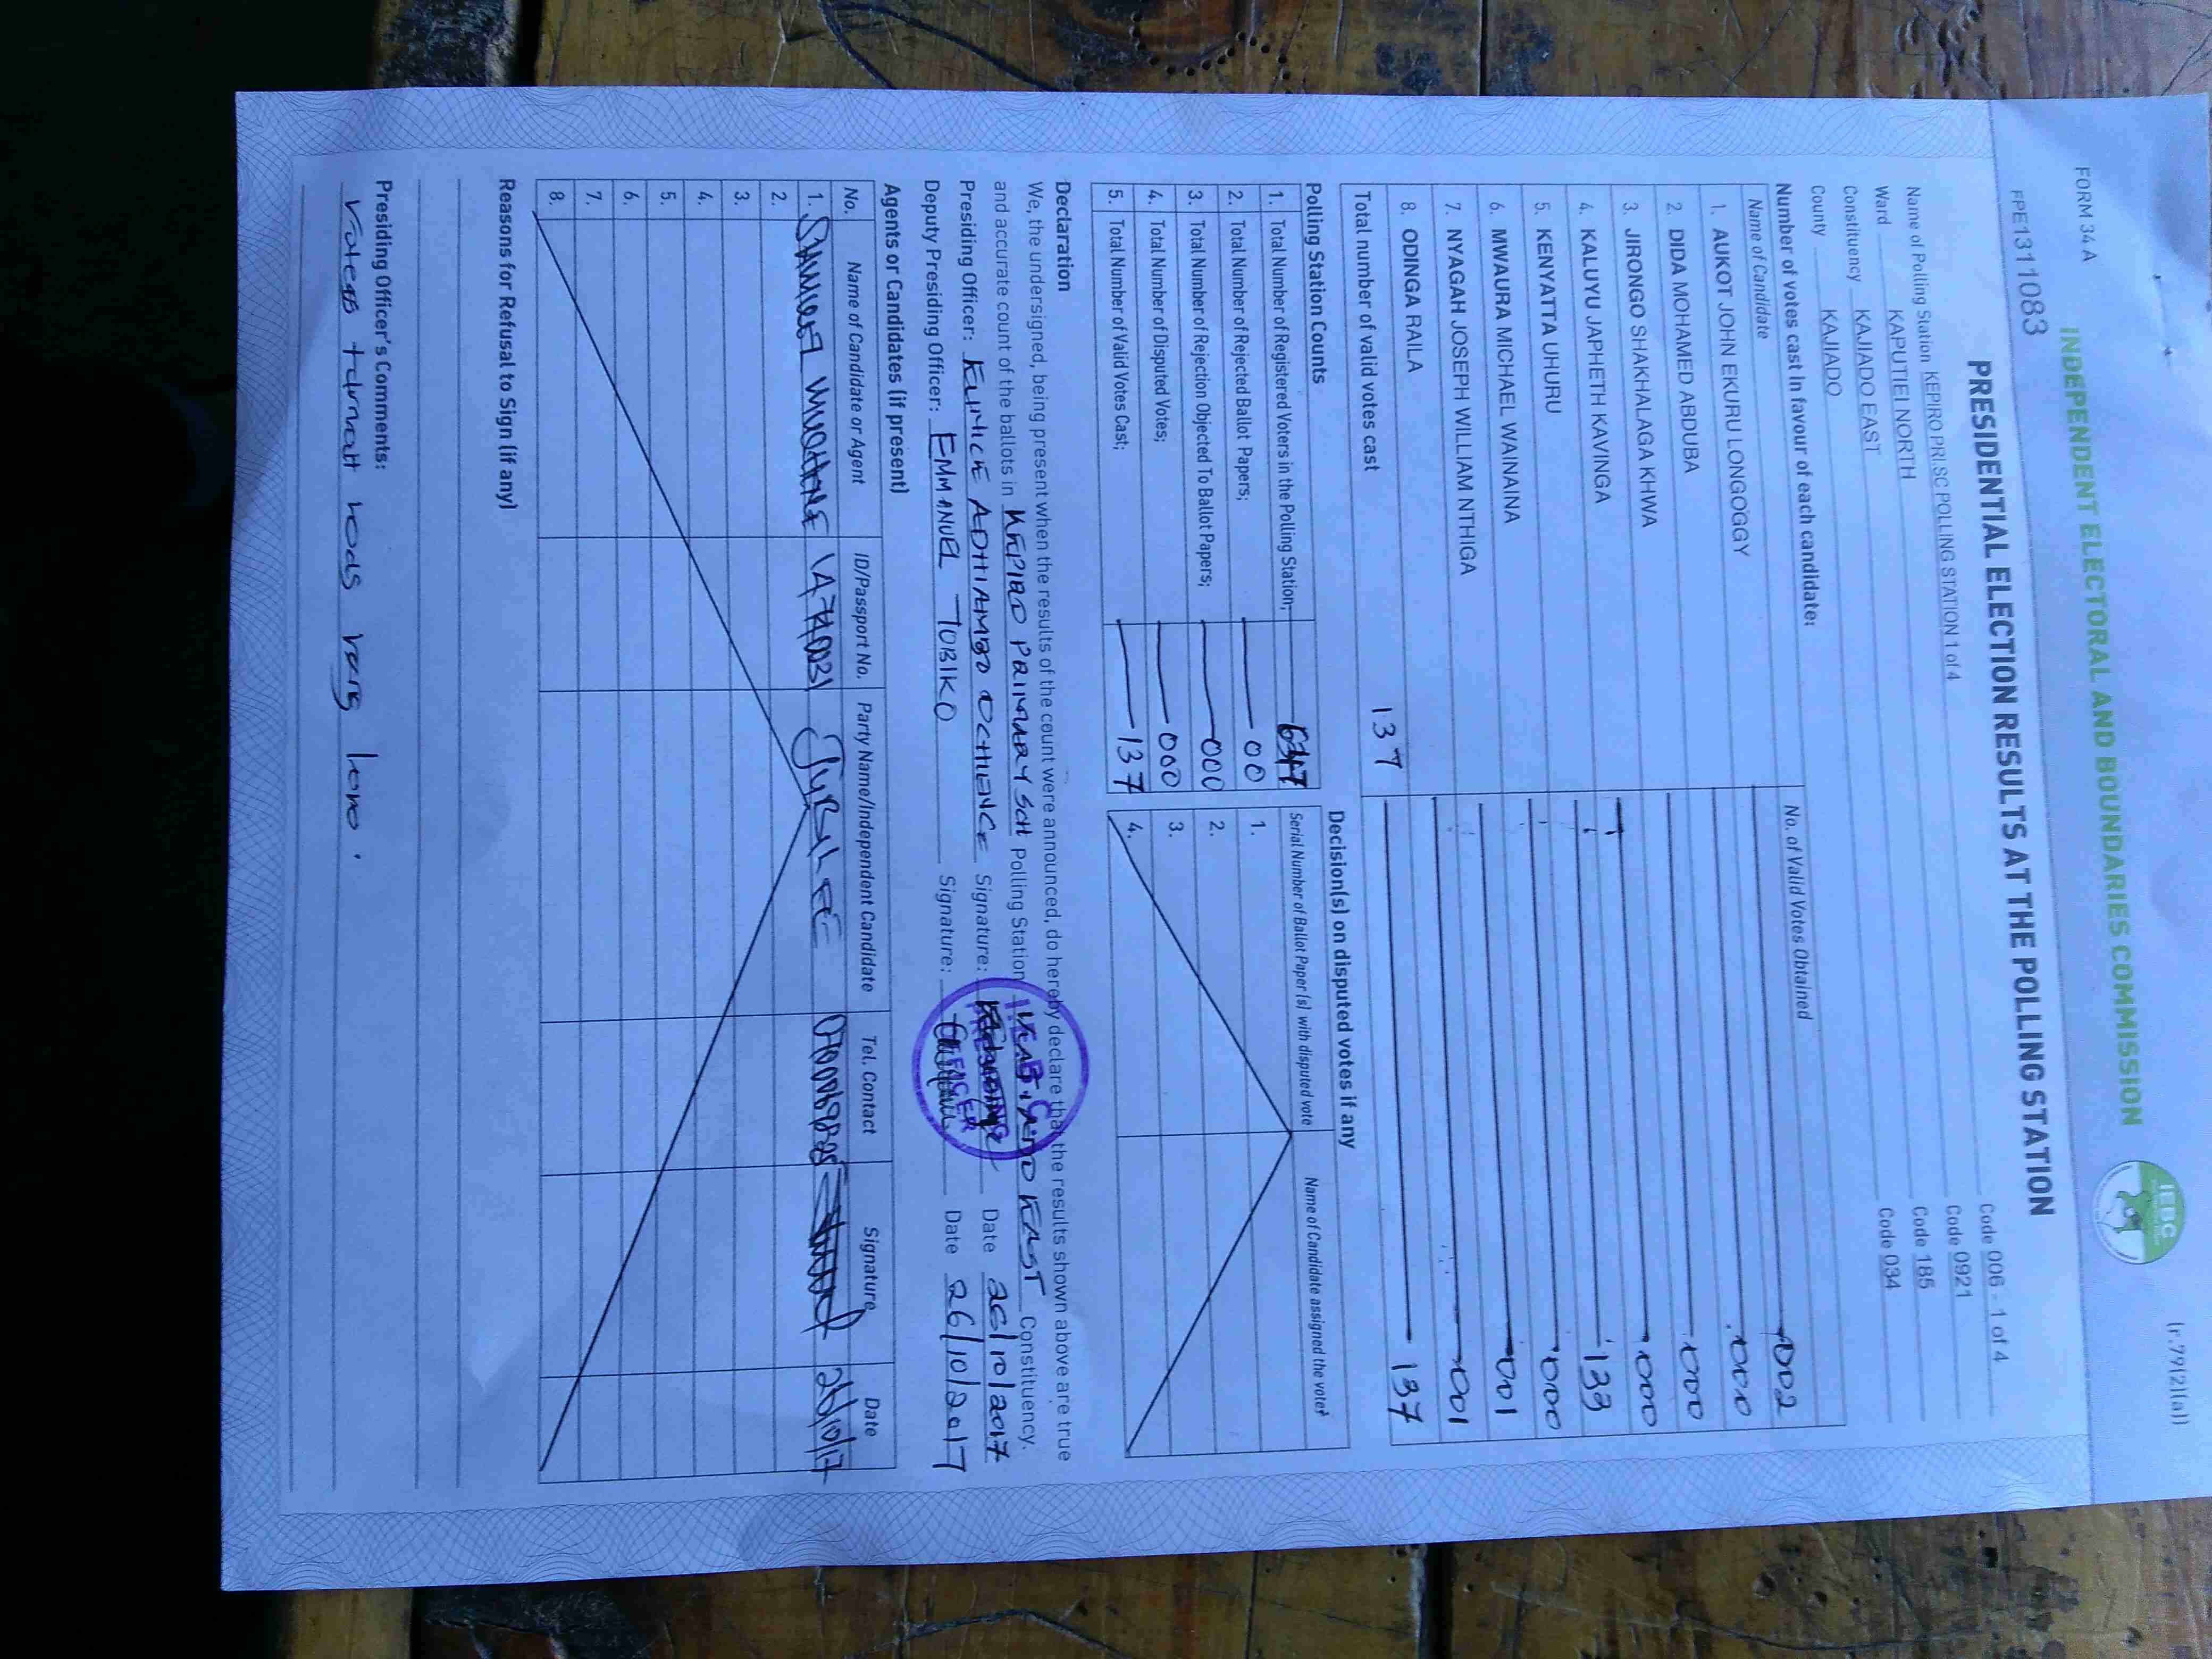 FORM 34A
(r.79(2)(a))
INDEPENDENT ELECTORAL AND BOUNDARIES COMMISSION
IEBC
FPE1311083
PRESIDENTIAL ELECTION RESULTS AT THE POLLING STATION
Name of Polling Station KEPIRO PRI.SC POLLING STATION 1 of 4 Code 006 - 1 of 4
Ward KAPUTIEI NORTH Code 0921
Constituency KAJIADO EAST Code 185
County KAJIADO Code 034
Number of votes cast in favour of each candidate:
Name of Candidate No. of Valid Votes Obtained
1. AUKOT JOHN EKURU LONGOGGY 002
2. DIDA MOHAMED ABDUBA 000
3. JIRONGO SHAKHALAGA KHWA 000
4. KALUYU JAPHETH KAVINGA 000
5. KENYATTA UHURU 133
6. MWAURA MICHAEL WAINAINA 000
7. NYAGAH JOSEPH WILLIAM NTHIGA 001
8. ODINGA RAILA 001
Total number of valid votes cast 137 137
Polling Station Counts
1. Total Number of Registered Voters in the Polling Station; 647
2. Total Number of Rejected Ballot Papers; 00
3. Total Number of Rejection Objected To Ballot Papers; 000
4. Total Number of Disputed Votes; 000
5. Total Number of Valid Votes Cast; 137
Decision(s) on disputed votes if any
Serial Number of Ballot Paper(s) with disputed vote Name of Candidate assigned the vote
1.
2.
3.
4.
Declaration
We, the undersigned, being present when the results of the count were announced, do hereby declare that the results shown above are true
and accurate count of the ballots in KEPIRO PRIMARY SCH Polling Station KAJIADO EAST Constituency.
Presiding Officer: EUNICE ADHIAMBO OCHIENG Signature: Date 26/10/2017
Deputy Presiding Officer: EMMANUEL TOBIKO Signature: Date 26/10/2017
I.E.B.C
PRESIDING
OFFICER
Agents or Candidates (if present)
No. Name of Candidate or Agent ID/Passport No. Party Name/Independent Candidate Tel. Contact Signature Date
1. SAMUEL JUBILEE 26/10/17
2.
3.
4.
5.
6.
7.
8.
Reasons for Refusal to Sign (if any)
Presiding Officer's Comments:
Voters turnout was very low.